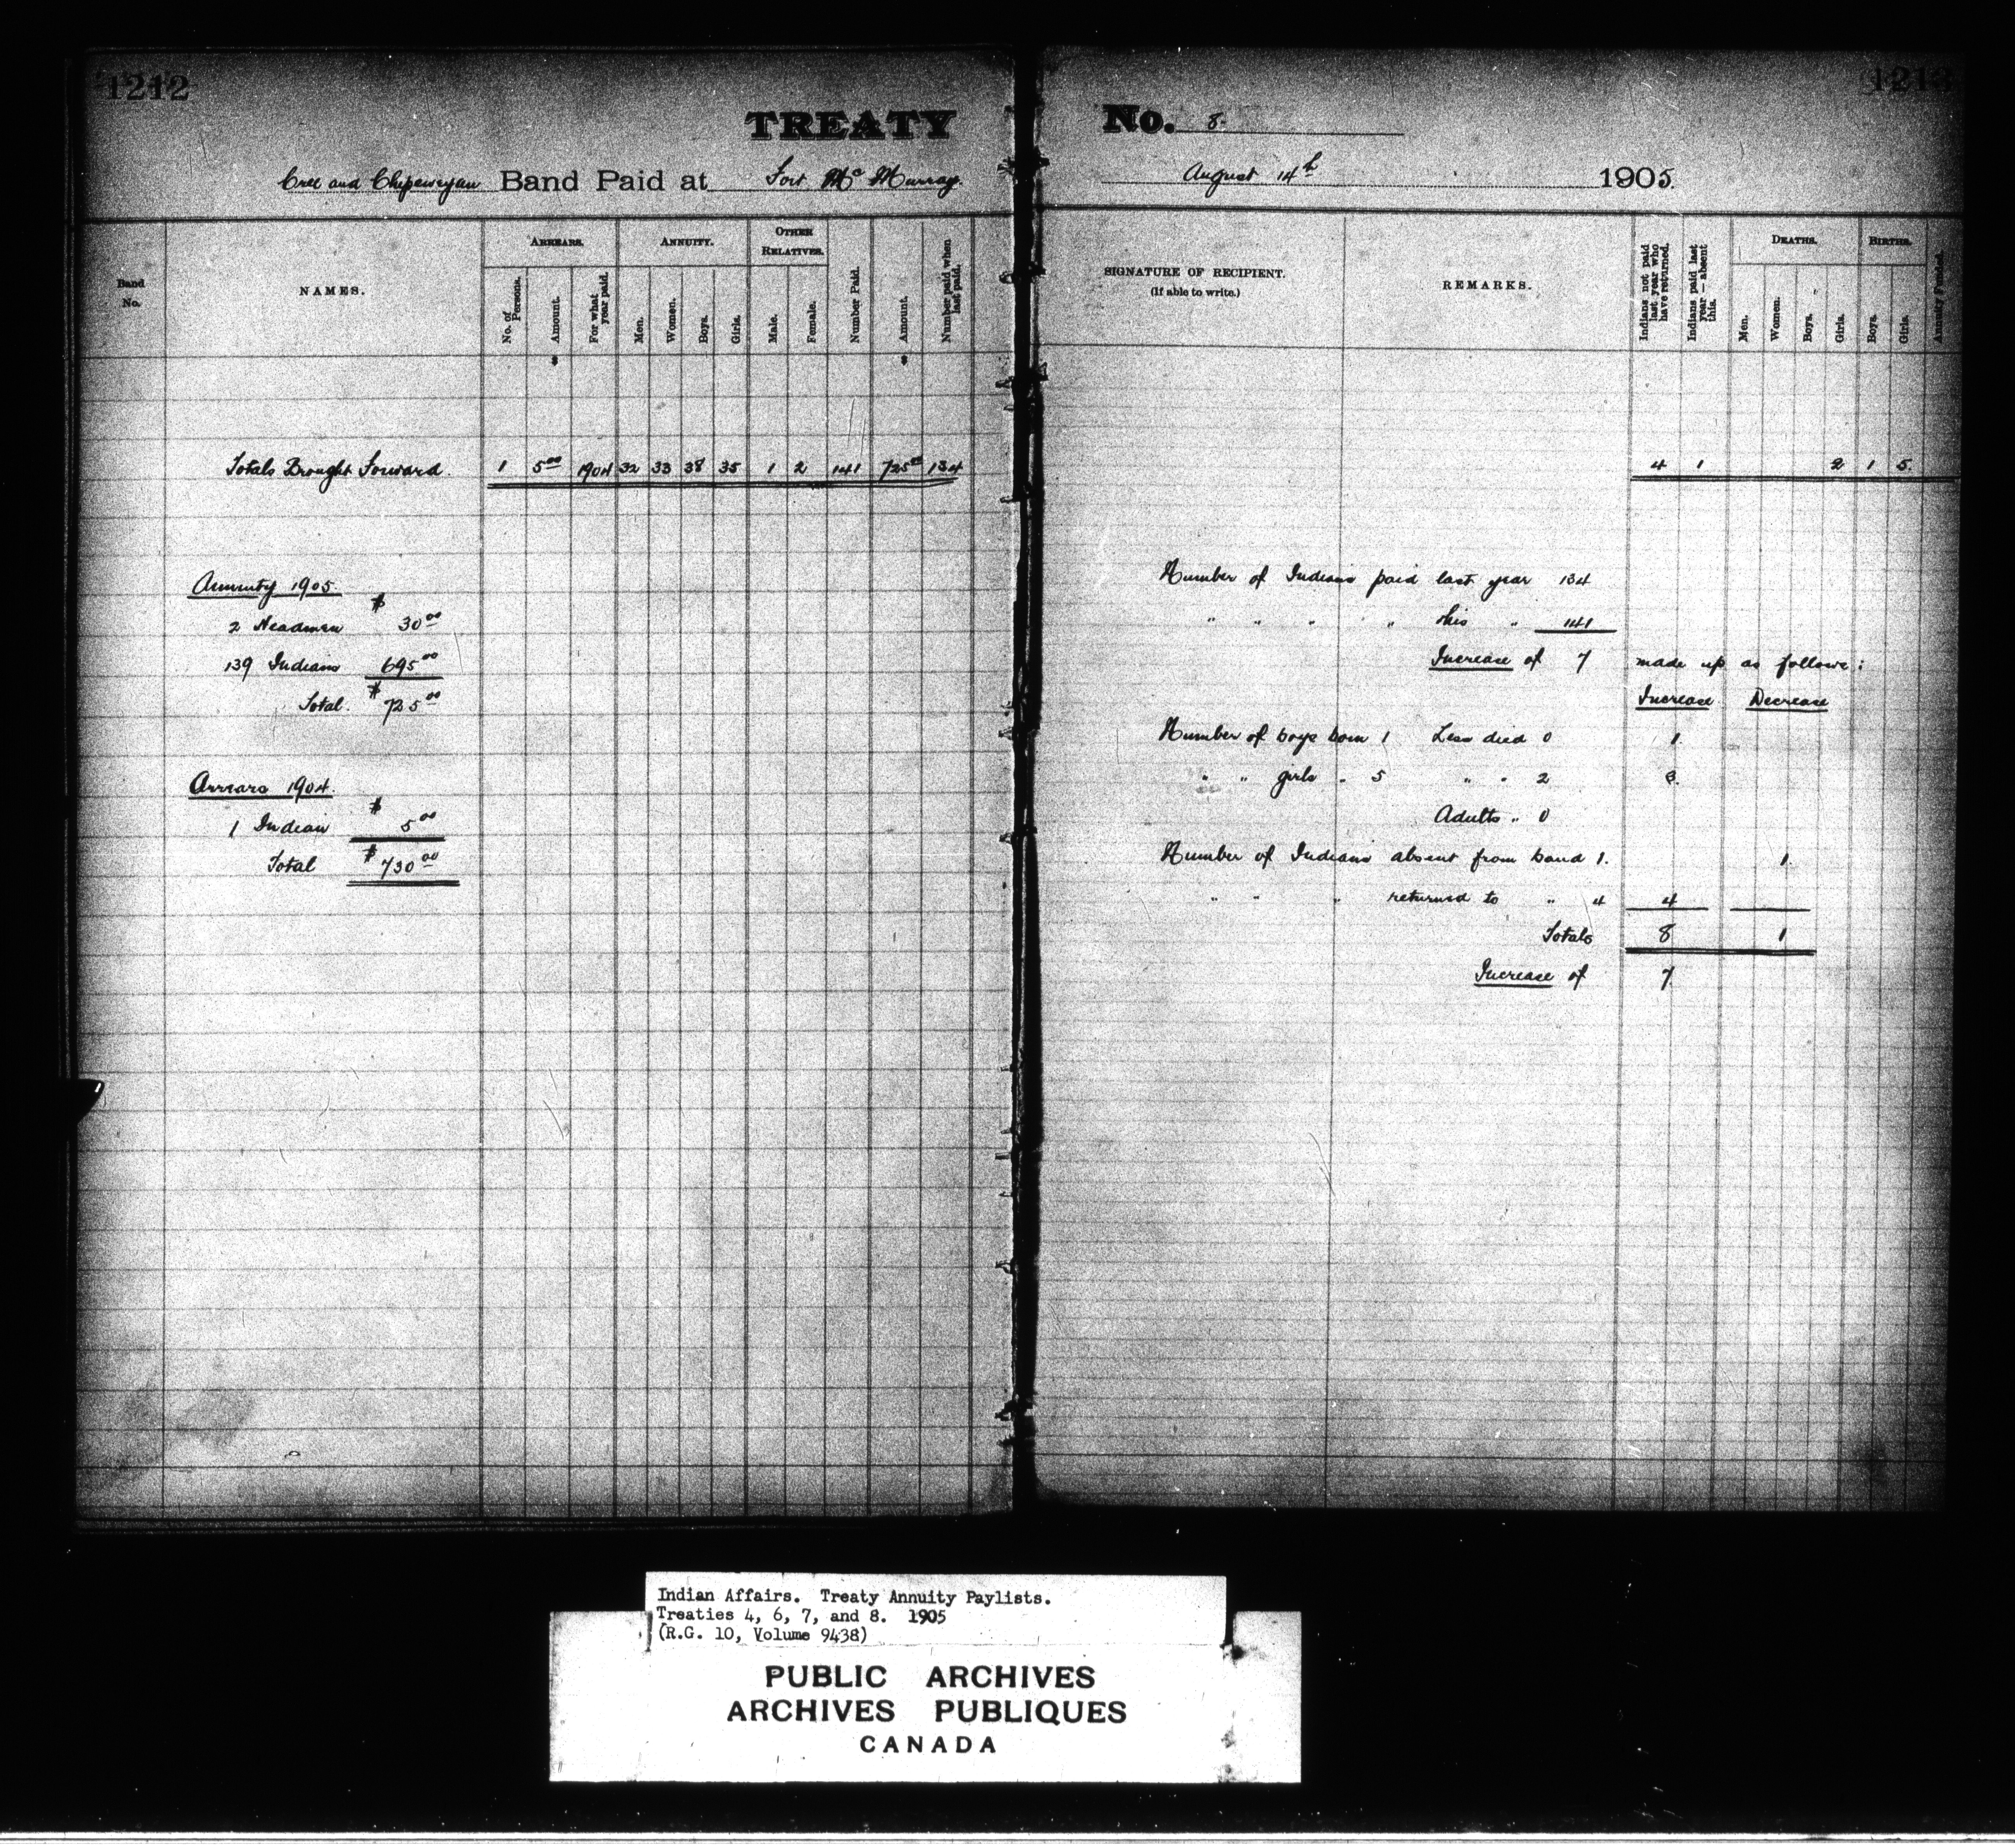 1212
TREATY
Cree and Chipeweyan Band Paid at Fort Mc Murray.
Band No.
NAMES.
ARREARS.
No. of Persons.
Amount.
For what year paid.
ANNUITY.
Men.
Women.
Boys.
Girls.
OTHER RELATIVES.
Male.
Female.
Number Paid.
Amount.
Number paid when last paid.
$ $
Totals Brought Forward. 1 5 00 1904 32 33 38 35 1 2 141 725 00 134
Annuity 1905.
2 Headmen $ 30 00
139 Indians 695 00
Total. $ 725 00
Arrears 1904.
1 Indian $ 5 00
Total $ 730 00
1213
No. 8.
August 14th 1905.
SIGNATURE OF RECIPIENT.
(If able to write.)
REMARKS.
Indians not paid last year who have returned.
Indians paid last year — absent this.
DEATHS.
Men.
Women.
Boys.
Girls.
BIRTHS.
Boys.
Girls.
Annuity Funded.
4 1 2 1 5.
Number of Indians paid last year 134
" " " " this " 141
Increase of 7 made up as follows:
Increase Decrease
Number of boys born 1 Less died 0 1.
" " girls " 5 " " 2 3.
Adults " 0
Number of Indians absent from band 1. 1
" " " returned to " 4 4
Totals 8 1
Increase of 7.
Indian Affairs. Treaty Annuity Paylists.
Treaties 4, 6, 7, and 8. 1905
(R.G. 10, Volume 9438)
PUBLIC ARCHIVES
ARCHIVES PUBLIQUES
CANADA